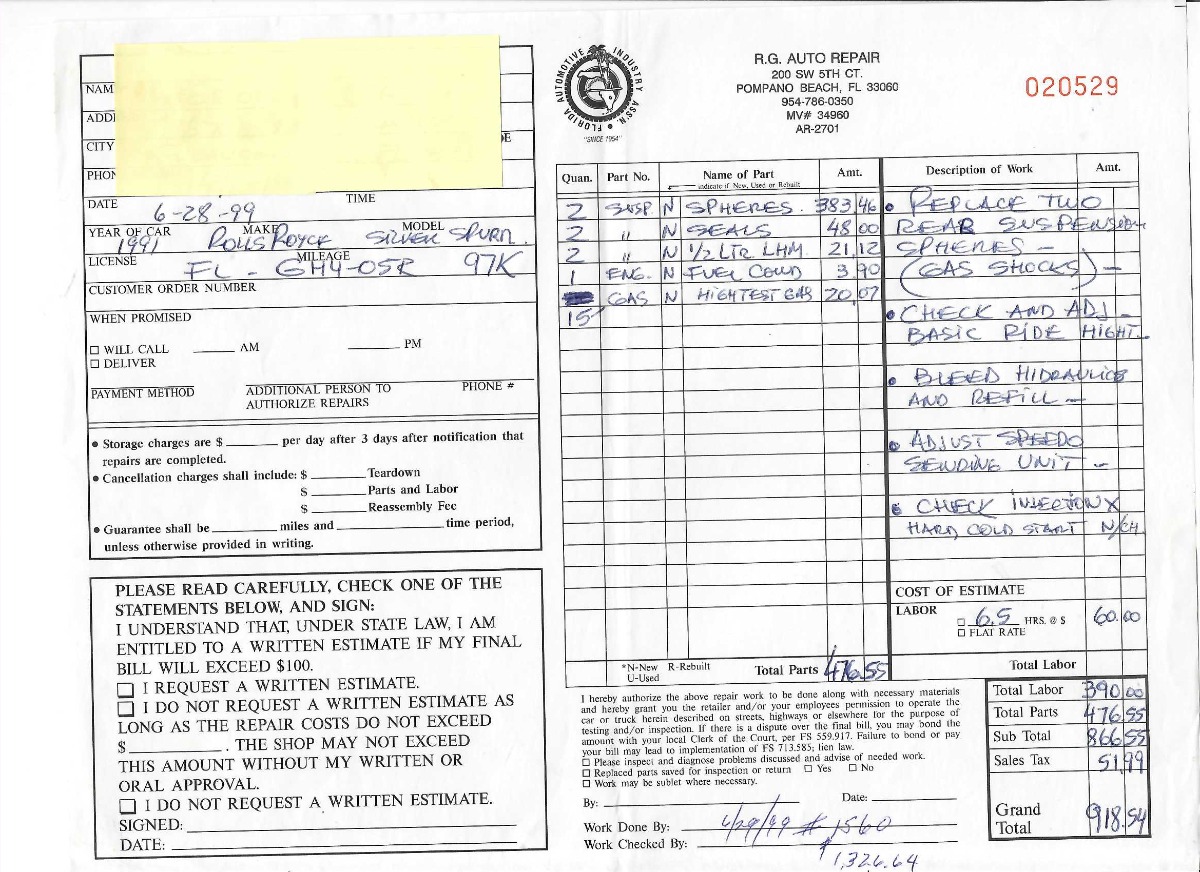 R.G. AUTO REPAIR
200 SW 5TH CT.
POMPANO BEACH, FL 33060
954-786-0350
MV# 34960
AR-2701
020529
FLORIDA AUTOMOTIVE INDUSTRY ASS'N.
"SINCE 1954"
NAM
ADD
CITY
PHON
DATE 6-28-99 TIME
YEAR OF CAR 1991 MAKE ROLLS ROYCE MODEL SILVER SPURR
LICENSE FL - GH4-05R MILEAGE 97K
CUSTOMER ORDER NUMBER
WHEN PROMISED
☐ WILL CALL ______ AM ______ PM
☐ DELIVER
PAYMENT METHOD ADDITIONAL PERSON TO AUTHORIZE REPAIRS PHONE #
• Storage charges are $ ______ per day after 3 days after notification that
repairs are completed.
• Cancellation charges shall include: $ ______ Teardown
$ ______ Parts and Labor
$ ______ Reassembly Fee
• Guarantee shall be ______ miles and ______ time period,
unless otherwise provided in writing.
PLEASE READ CAREFULLY, CHECK ONE OF THE
STATEMENTS BELOW, AND SIGN:
I UNDERSTAND THAT, UNDER STATE LAW, I AM
ENTITLED TO A WRITTEN ESTIMATE IF MY FINAL
BILL WILL EXCEED $100.
☐ I REQUEST A WRITTEN ESTIMATE.
☐ I DO NOT REQUEST A WRITTEN ESTIMATE AS
LONG AS THE REPAIR COSTS DO NOT EXCEED
$ ______ . THE SHOP MAY NOT EXCEED
THIS AMOUNT WITHOUT MY WRITTEN OR
ORAL APPROVAL.
☐ I DO NOT REQUEST A WRITTEN ESTIMATE.
SIGNED:
DATE:
Quan. Part No. Name of Part Amt.
indicate if New, Used or Rebuilt
2 SUSP. N SPHERES. 383,46
2 " N SEALS 48 00
2 " N 1/2 LTR LHM 21,12
1 ENG. N FUEL COND 3.90
GAS N HIGHTEST GAS 20,07
15
*N-New R-Rebuilt
U-Used
Total Parts 476.55
Description of Work Amt.
• REPLACE TWO
REAR SUSPENSION
SPHERES -
(GAS SHOCKS) -
• CHECK AND ADJ -
BASIC RIDE HIGHT -
• BLEED HIDRAULICS
AND REFILL -
• ADJUST SPEEDO
SENDING UNIT -
• CHECK INJECTION X
HARD, COLD START N/CH
COST OF ESTIMATE
LABOR
☐ 6.5 HRS. @ $ 60.00
☐ FLAT RATE
Total Labor
I hereby authorize the above repair work to be done along with necessary materials
and hereby grant you the retailer and/or your employees permission to operate the
car or truck herein described on streets, highways or elsewhere for the purpose of
testing and/or inspection. If there is a dispute over the final bill, you may bond the
amount with your local Clerk of the Court, per FS 559.917. Failure to bond or pay
your bill may lead to implementation of FS 713.585; lien law.
☐ Please inspect and diagnose problems discussed and advise of needed work.
☐ Replaced parts saved for inspection or return ☐ Yes ☐ No
☐ Work may be sublet where necessary.
By: Date:
Work Done By: 6/29/99 # 1560
Work Checked By:
$1,326.64
Total Labor 390,00
Total Parts 476.55
Sub Total 866,55
Sales Tax 51,99
Grand Total 918.54